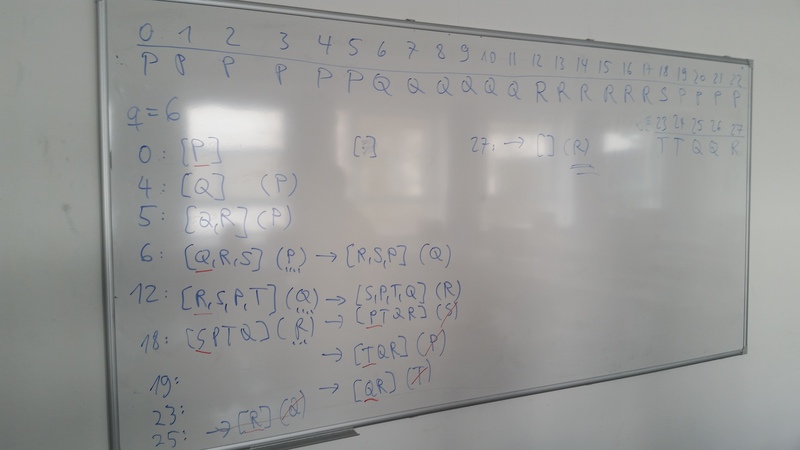 0 1 2 3 4 5 6 7 8 9 10 11 12 13 14 15 16 17 18 19 20 21 22
P P P P P P Q Q Q Q Q Q R R R R R R S P P P P
q=6
23 24 25 26 27
T T Q Q R
0: [P] [:] 27: → [] (R)
4: [Q] (P)
5: [Q,R] (P)
6: [Q,R,S] (P) → [R,S,P] (Q)
12: [R,S,P,T] (Q) → [S,P,T,Q] (R)
18: [SPTQ] (R) → [PTQR] (S)
→ [TQR] (P)
19: → [QR] (T)
23:
25: → [R] (Q)